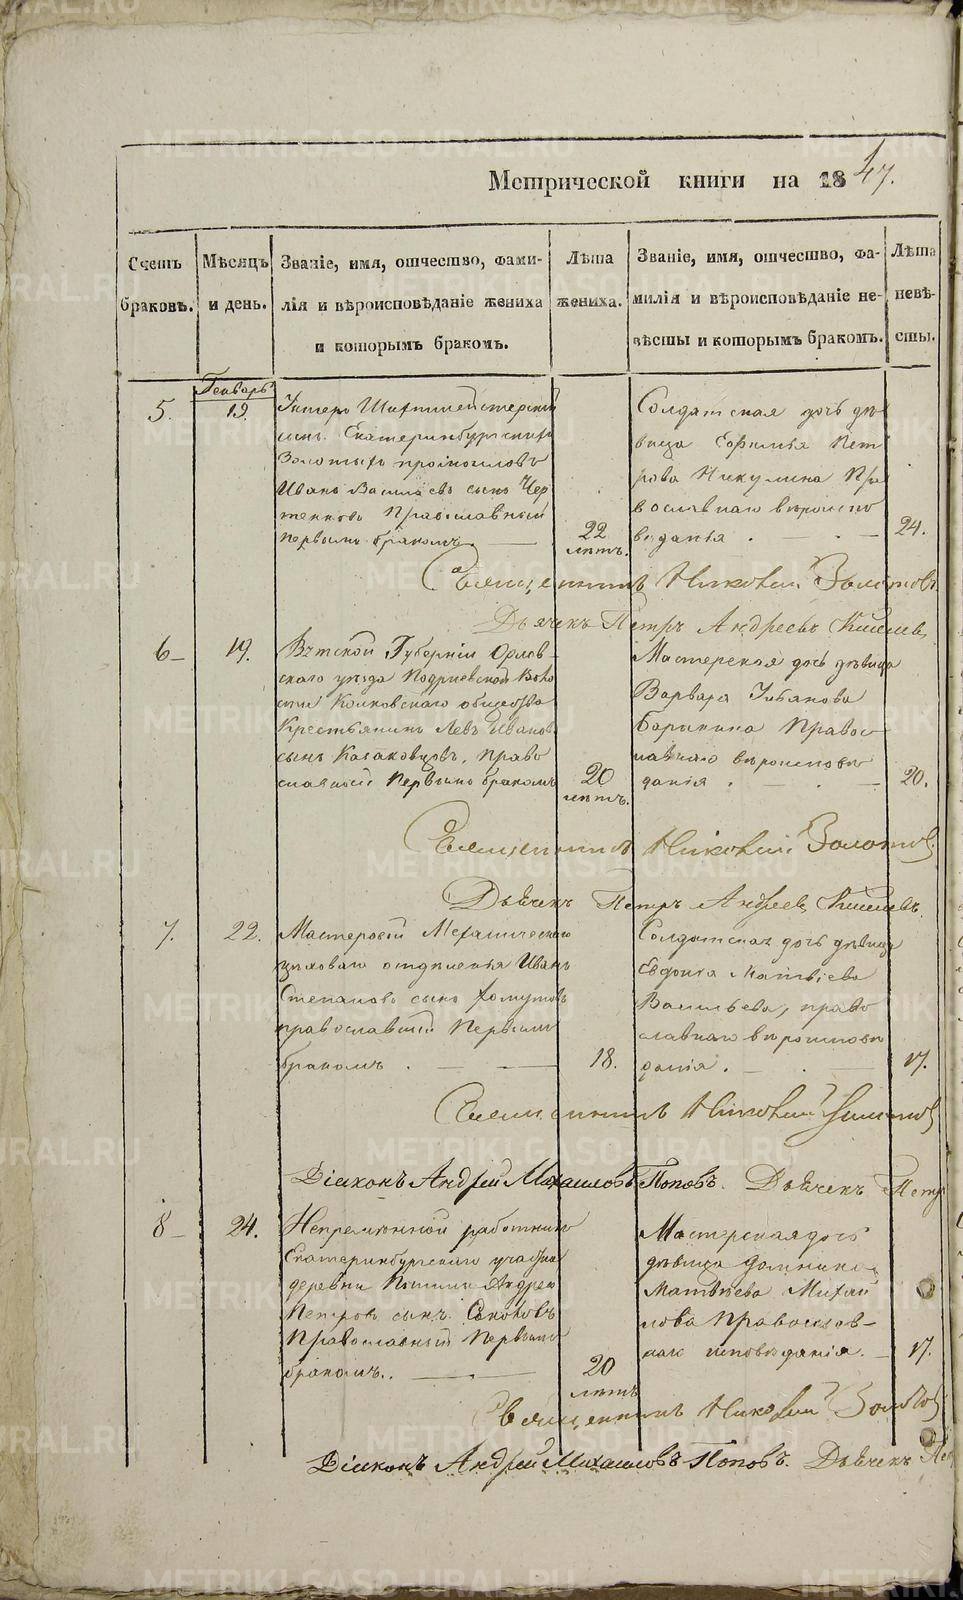 Метрической книги на 1847.
Счетъ браковъ.
Мѣсяцъ и день.
Званіе, имя, отчество, фами-
лія и вѣроисповѣданіе жениха
и которымъ бракомъ.
Лѣта
жениха.
Званіе, имя, отчество, фа-
милія и вѣроисповѣданіе не-
вѣсты и которымъ бракомъ.
Лѣта
невѣ-
сты.
Генварь
5.
19.
Шихтмейстерскій
сынъ Екатеринбургскихъ
Золотыхъ промысловъ
Иванъ Васильевъ сынъ Чер
Православный
первымъ бракомъ.
22
лѣтъ.
Солдатская дочь дѣ
вица Ефимья Пет
рова Никулина Пра
вославнаго вѣроиспо
веданья.
24.
Священникъ Николай Золотовъ
Дьячекъ Петръ Андреевъ Киселев
6
19.
Вятской Губерніи Орлов
скаго уезда
общества
Крестьянинъ Левъ Иванов
сынъ Казаковцовъ, Право
славный Первымъ бракомъ
20
лѣтъ.
Мастерская дочь дѣвица
Варвара
Правос
лавнаго вѣроисповѣ
данія.
20.
Священникъ Николай Золотов
Дьячекъ Петръ Андреев Киселевъ.
7.
22.
Мастеровой Механическаго
цеховаго отдѣленья Иванъ
Степановъ сынъ Хомутовъ
православный Первымъ
бракомъ.
18.
Солдатская дочь дѣвица
Евдокія Матвѣева
Васильева, право
славнаго вѣроисповѣ
данія.
17.
Священникъ Николай Золотов
Діаконъ Андрей Михаиловъ Поповъ. Дьячекъ Петр
8
24.
Непремѣнной работникъ
Екатеринбургскаго
деревни Андрей
Петровъ сынъ Соколовъ
Православный Первымъ
бракомъ.
20
лѣтъ
Мастерская дочь
дѣвица Домника
Матвѣева Михай
лова Православ-
наго исповѣданія.
17.
Священникъ Николай Золотов
Діаконъ Андрей Михаиловъ Поповъ. Дьячекъ Пет
METRIKI.GASO-URAL.RU